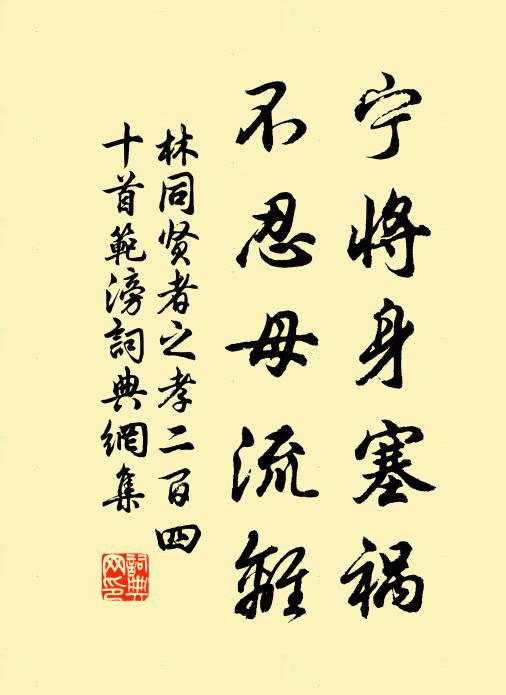 宁将身塞祸
不忍母流离
林同贤者之孝二百四
十首範滂詞典網集
詞典
网印